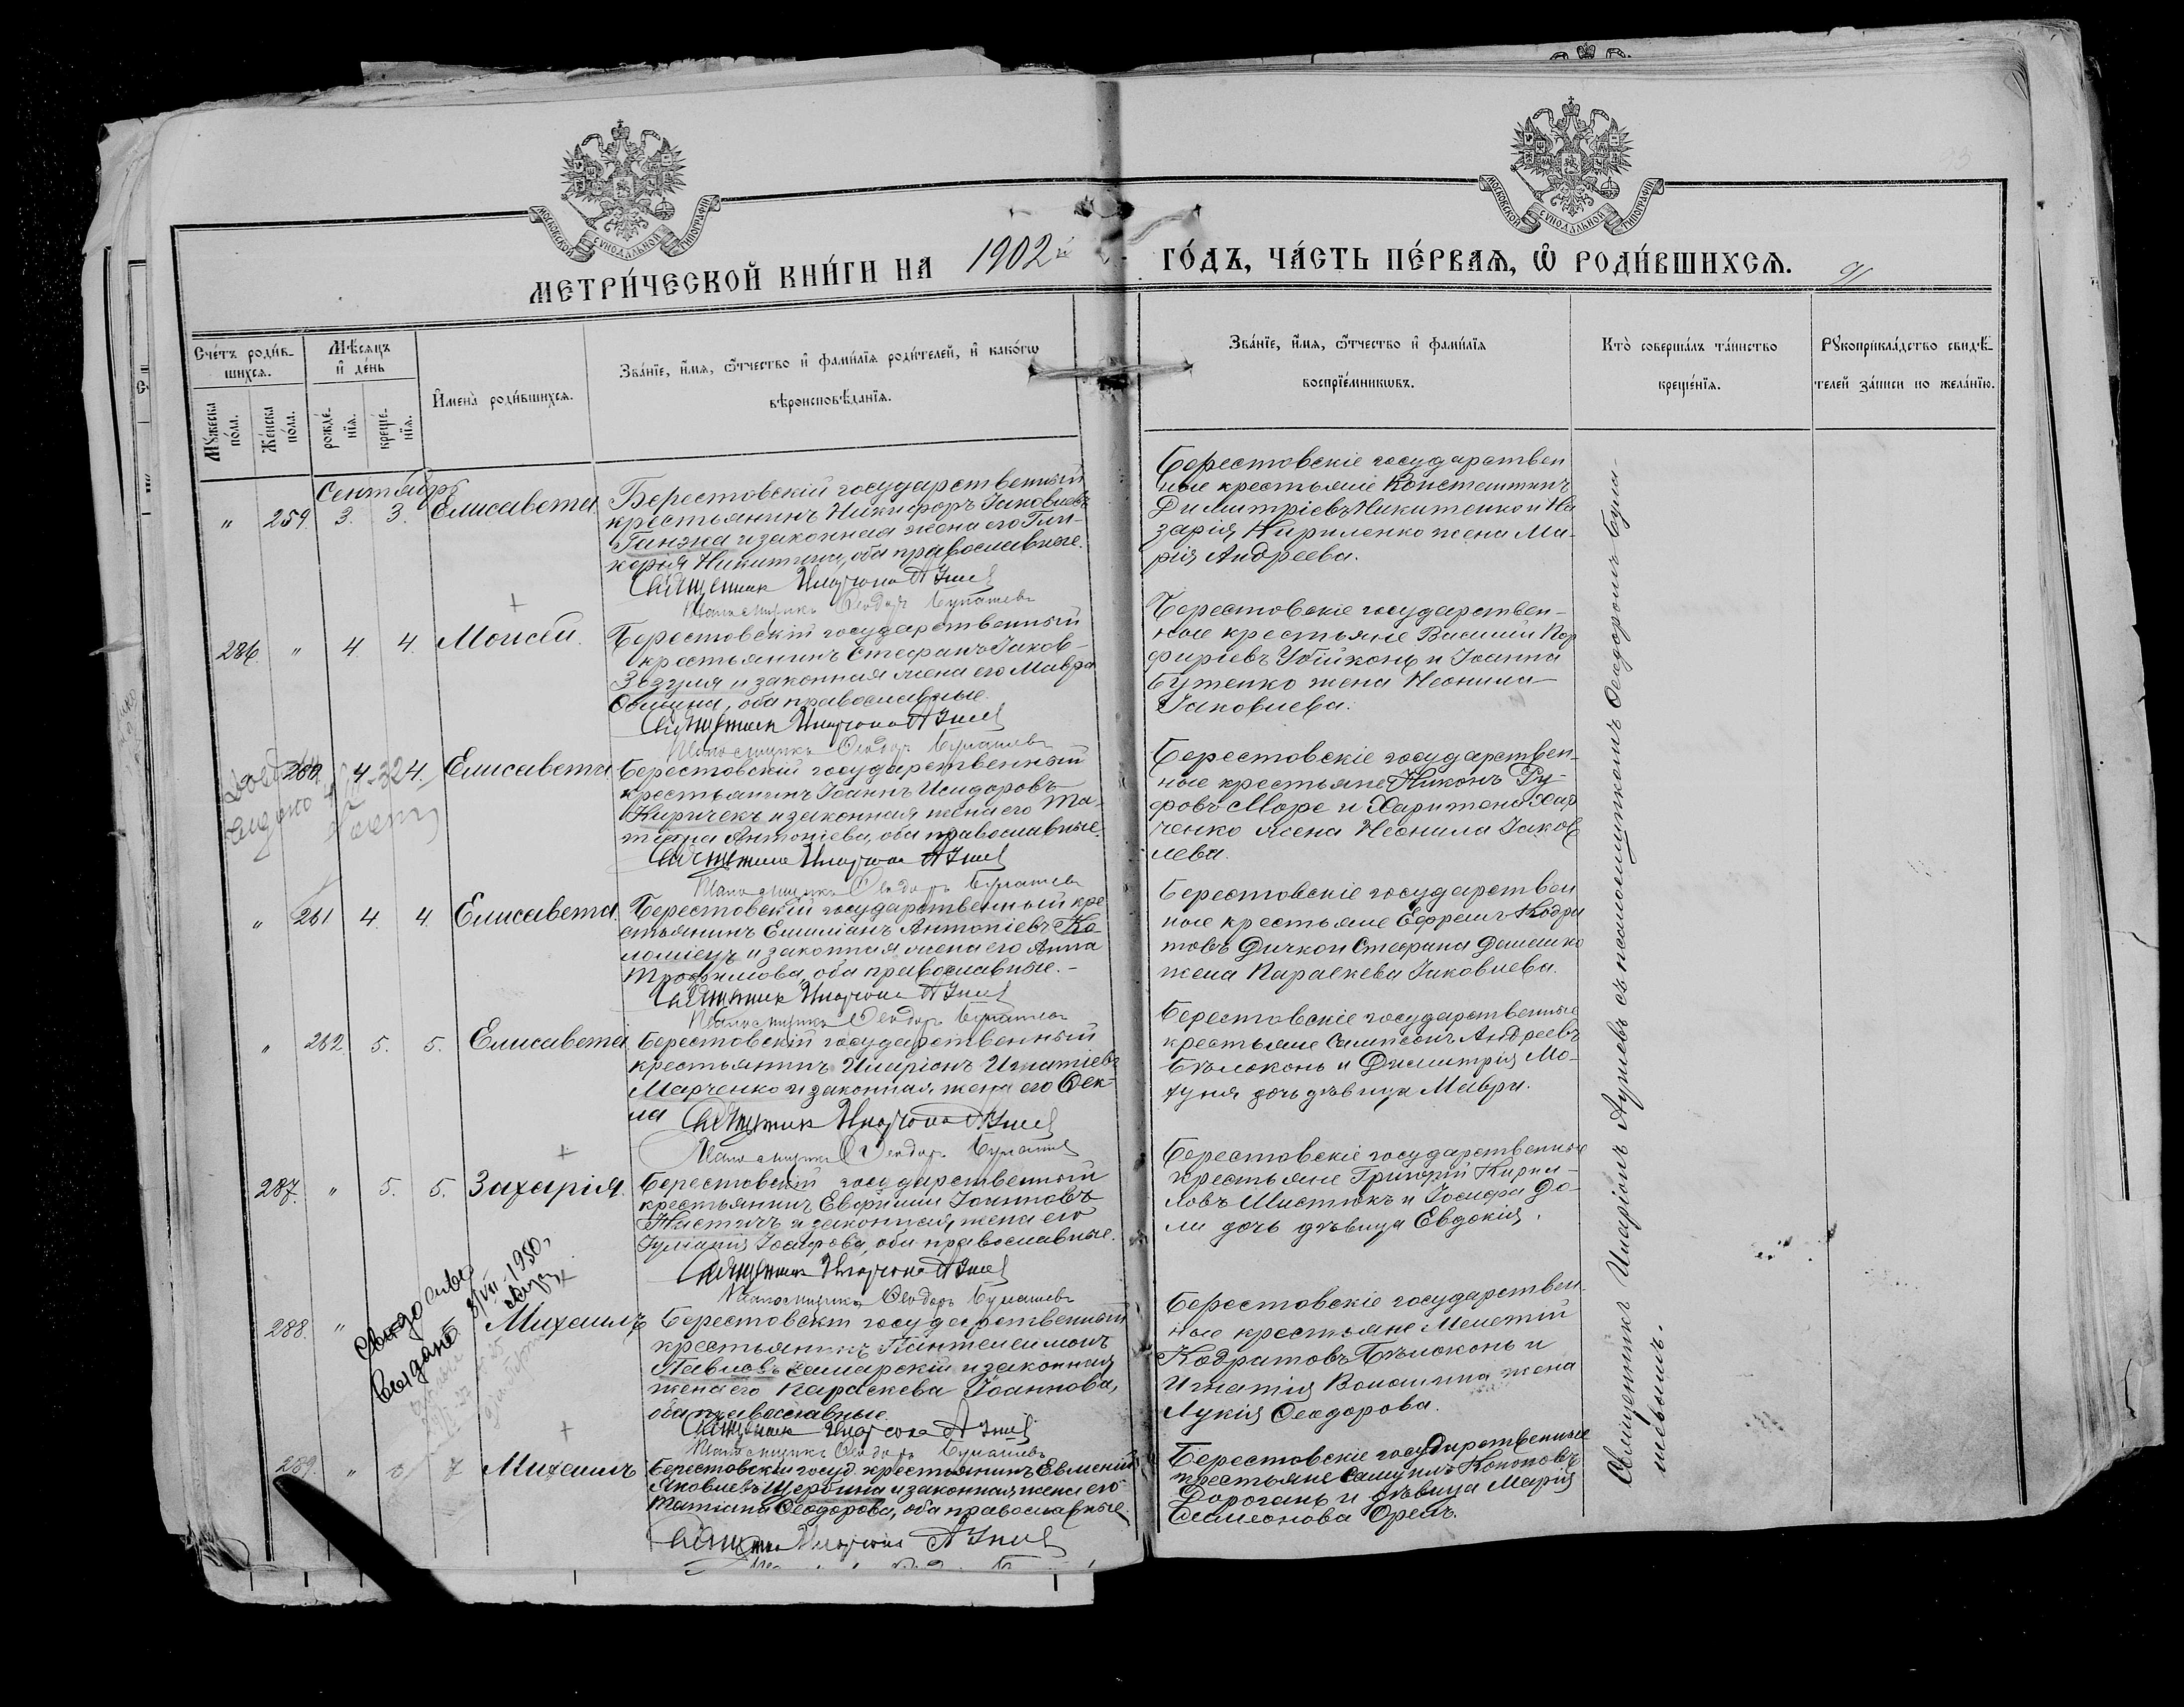 МОСКОВСКОЙ СѴНОДАЛЬНОЙ ТИПОГРАФІИ
МОСКОВСКОЙ СѴНОДАЛЬНОЙ ТИПОГРАФІИ
МЕТРИ́ЧЕСКОЙ КНИ́ГИ НА 1902 й ГО́ДЪ, ЧА́СТЬ ПЕ́РВАѦ, Ѽ РОДИ́ВШИХСѦ.
Сче́тъ роди́в-
шихсѧ.
Мꙋжеска по́ла.
Же́нска по́ла.
Мѣ́сѧцъ
и҆ де́нь
рожде́-
нїѧ.
креще́-
нїѧ.
И҆мена̀ роди́вшихсѧ.
Зва́нїе, и҆́мѧ, ѻ҆́тчество и҆ фами́лїѧ роди́телей, и҆ како́гѡ
вѣроисповѣ́данїѧ.
Зва́нїе, и҆́мѧ, ѻ҆́тчество и҆ фами́лїѧ
воспрїе́мникѡвъ.
Кто̀ соверша́лъ та́инство
креще́нїѧ.
Рꙋкоприкла́дство свидѣ́-
телей за́писи по жела́нїю.
Сентябрь
" 259. 3. 3. Елисавета
Берестовскій государственный
крестьянинъ Никифоръ Іаковлевъ
Ганжа и законная жена его Гли-
керія Никитина, оба православные.
Священник Иларіонъ
Псаломщикъ Ѳеодоръ Булашевъ
Берестовскіе государствен
ные крестьяне Константинъ
Димитріевъ Никитенко и На
зарія Кириленко жена Ма-
рія Андреева.
286. " 4. 4. Моисей.
Берестовскій государственный
крестьянинъ Стефанъ Іаков-
Зозуля и законная жена его Мавра
оба православные.
Священник Иларіонъ
Псаломщикъ Ѳеодоръ Булашевъ
Берестовскіе государствен-
ные крестьяне Василій Пор
фиріевъ Убійконь и Іоанна
Бутенко жена Неонила
Іаковлева.
260. 4 4. Елисавета
Берестовскій государственный
крестьянинъ Іоаннъ Исидоровъ
Киричекъ и законная жена его Та-
тіана Антоніева, оба православные.
Священник Иларіонъ
Псаломщикъ Ѳеодоръ Булашевъ
Берестовскіе государствен-
ные крестьяне Никонъ Ру-
фовъ Море и Харитона Хар
ченко жена Неонила Іаков
лева.
" 261 4. 4. Елисавета.
Берестовскій государственный кре
стьянинъ Емиліанъ Антоніевъ Ко-
ломіецъ и законная жена его Анна
Трофимова, оба православные. -
Священник Иларіонъ
Псаломщикъ Ѳеодоръ Булашевъ
Берестовскіе государствен
ные крестьяне Ефремъ Кодра
товъ Дичко и Стефана
жена Параскева Іаковлева.
" 262 5. 5. Елисавета
Берестовскій государственный
крестьянинъ Иларіонъ Игнатіевъ
Марченко и законная жена его Ѳек-
ла
Священник Иларіонъ
Псаломщикъ Ѳеодоръ Булашевъ
Берестовскіе государственные
крестьяне Сампсонъ Андреевъ
Бѣлоконь и Димитрія Мо-
дочь дѣвица Мавра.
287. " 5. 5. Захарія.
Берестовскій государственный
крестьянинъ Евфимій Іоанновъ
и законная жена его
Іуліанія Іосифова, оба православные.
Священник Иларіонъ
Псаломщикъ Ѳеодоръ Булашевъ
Берестовскіе государственные
крестьяне Григорій Кирил-
ловъ Шистюкъ и Іосифа До-
ли дочь дѣвица Евдокія.
288. " Михаилъ
выдано 1950,
Берестовскій государственный
крестьянинъ Пантелеимонъ
Павловъ Самарскій и законная
жена его Параскева Іоаннова,
оба православные.
Священник Иларіонъ
Псаломщикъ Ѳеодоръ Булашевъ
Берестовскіе государствен-
ные крестьяне Мелетій
Кодратовъ Бѣлоконь и
Игнатія Волошина жена
Лукія Ѳеодорова.
289. " 7 Михаилъ
Берестовскій госуд. крестьянинъ Евменій
Яковлевъ Щербина и законная жена его
Татіана Ѳеодорова, оба православные
Берестовскіе государственные
крестьяне Самуилъ Кононовъ
Дорогань и дѣвица Марія
Симеонова Орелъ.
Священникъ Иларіонъ съ псаломщикомъ Ѳеодоромъ Була-
шевымъ.